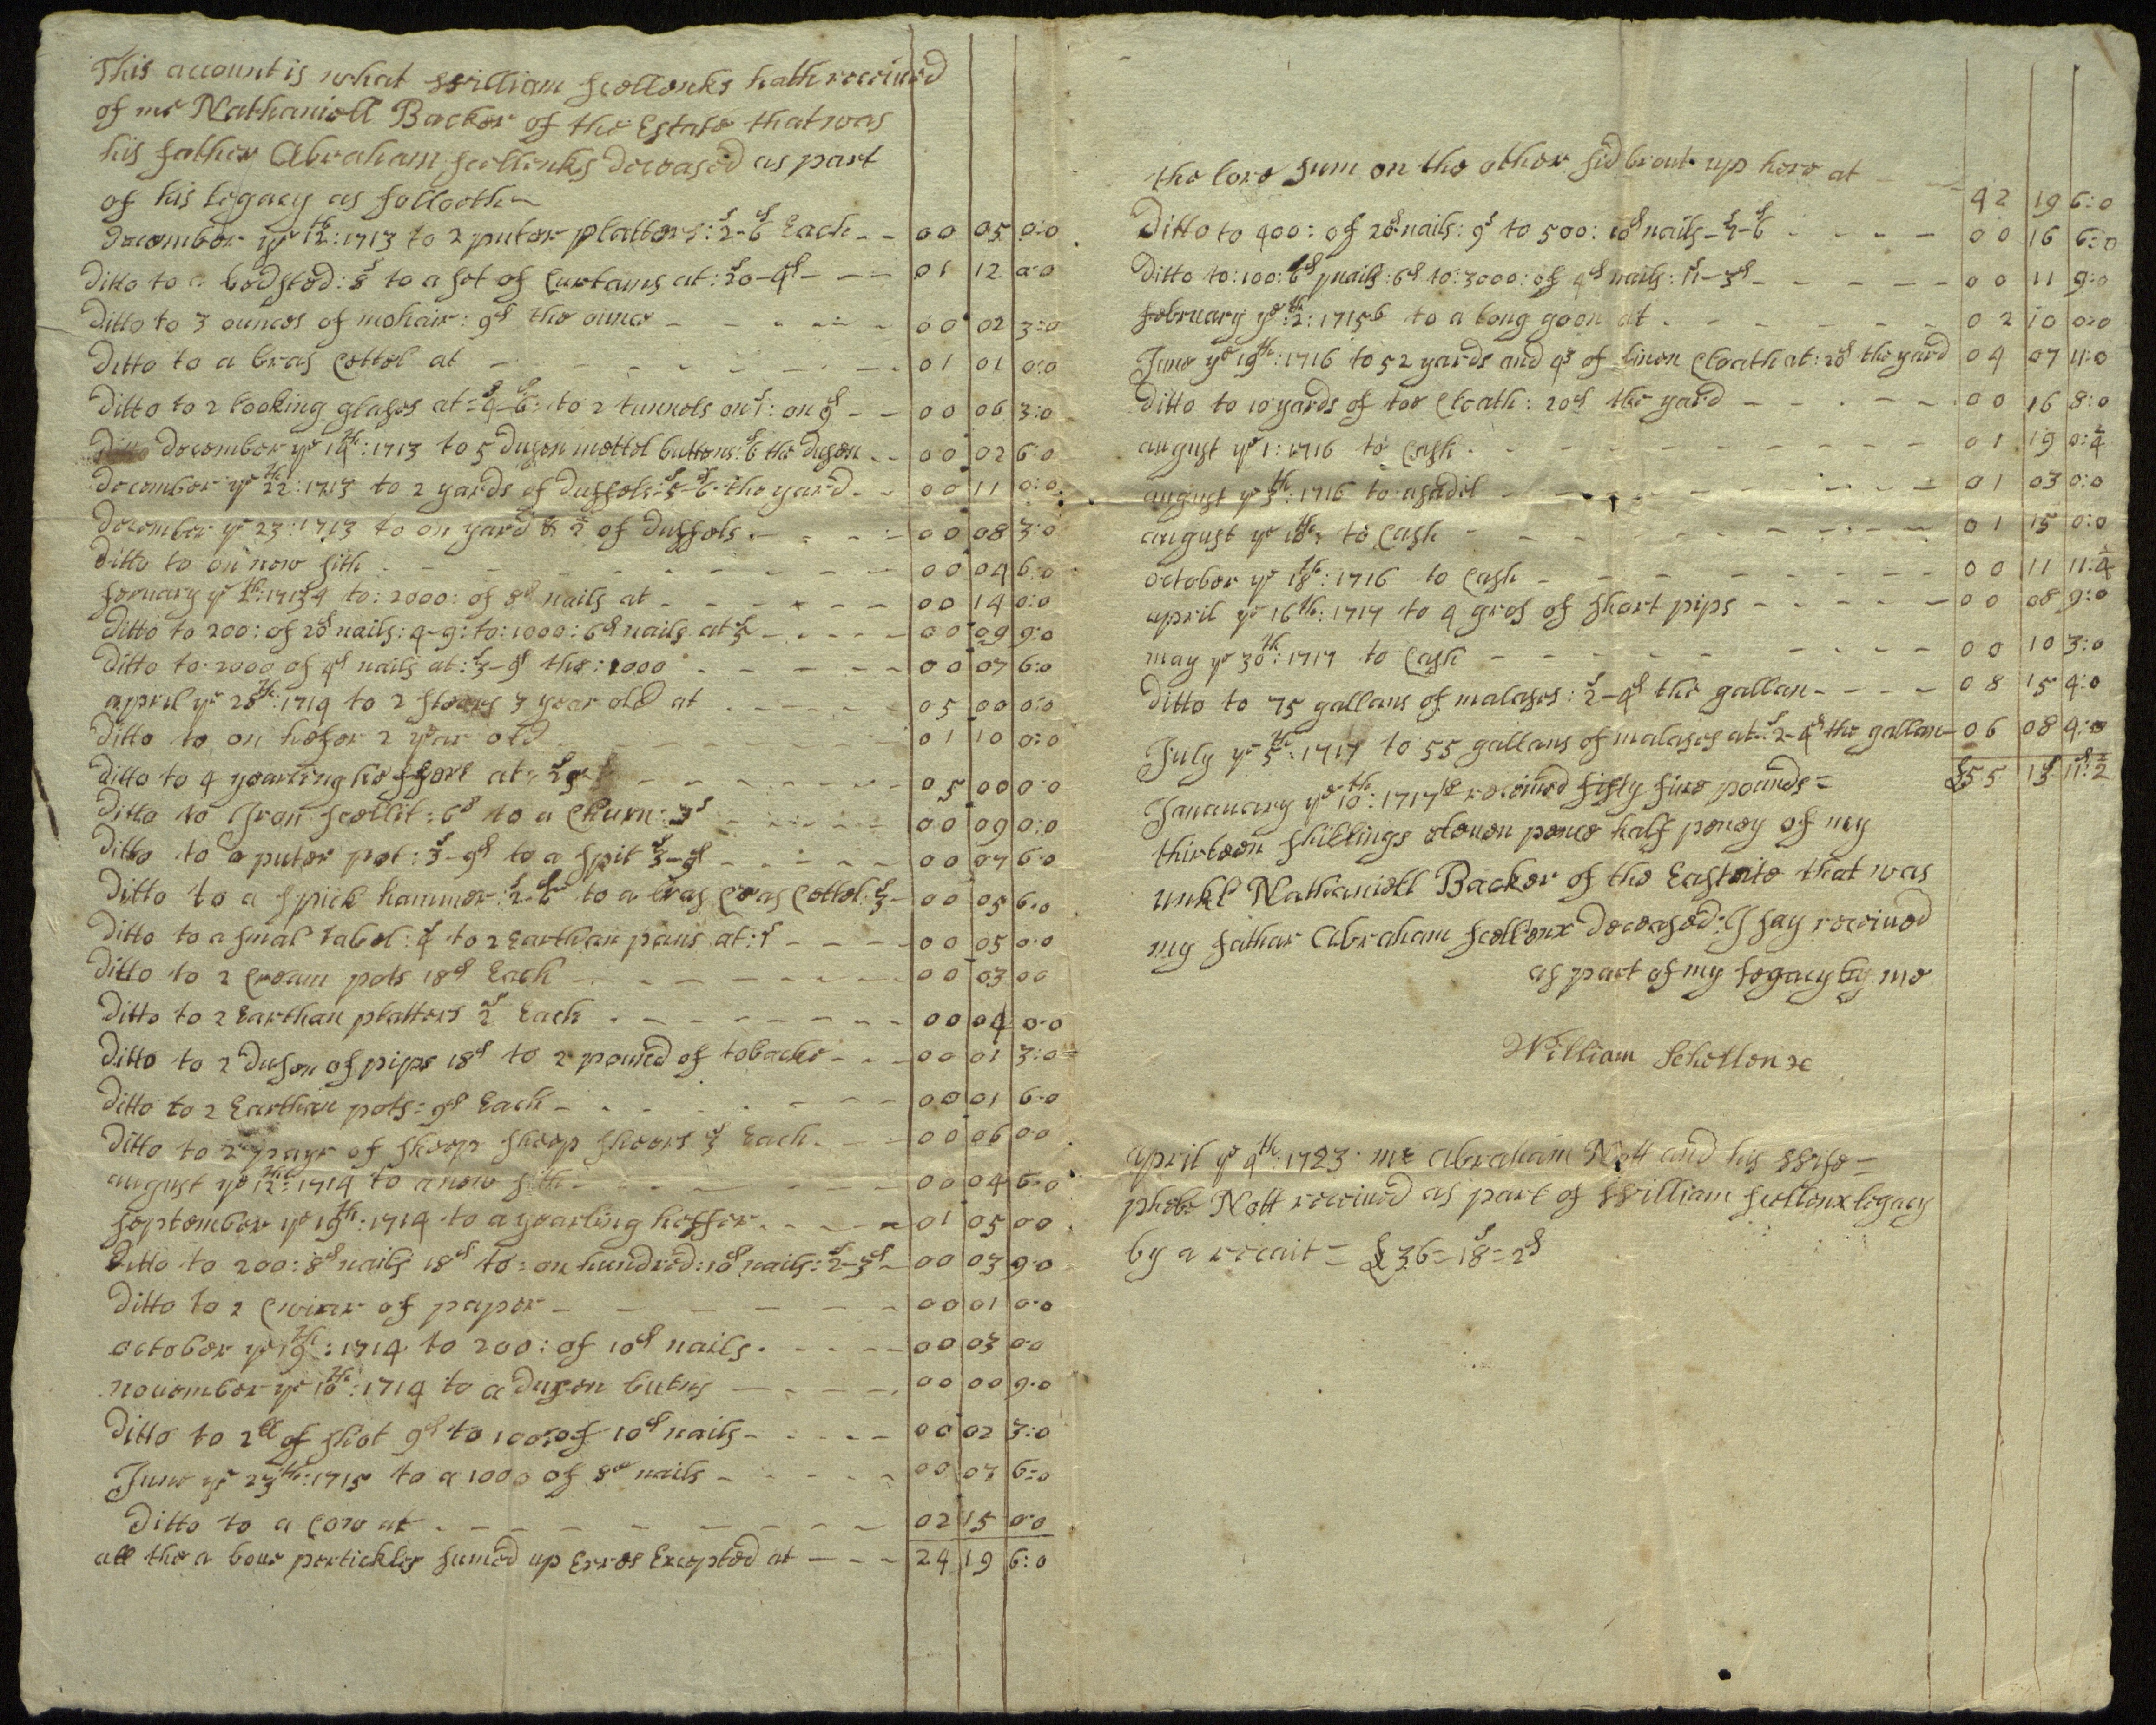 This account is what William Scollenks hath receiued
of me Nathaniell Backer of the Estate that was
his father Abraham Scellenks Deceased as part
of his legacy as followeth
December ye 12th: 1713 to 2 puter platters: 2s-6d Each - - 00 05 0:0
Ditto to a bedsted: 8s to a set of Curtains at: 20s-4d - - - 01 12 0:0
Ditto to 3 ounces of mohair: 9d the ounce - - - - - 00 02 3:0
Ditto to a bras Cettel at - - - - - - - - 01 01 0:0
Ditto to 2 looking glases at = 4s-6d: to 2 tunnels on 1s: on 9d - - 00 06 3:0
December ye 14th: 1713 to 5 Duzen mettel buttons: 6d the Duzen - - 00 02 6:0
December ye 22th: 1713 to 2 yards of Duffels: 5s-6d the yard - - 00 11 0:0
December ye 23: 1713 to on yard & ½ of Duffels - - - 00 08 3:0
Ditto to on new sith - - - - - - - - 00 04 6:0
feruary ye th: 1713/4 to: 2000: of 8d nails at - - - - - - 00 14 0:0
Ditto to 200: of 20d nails: 4-9: to: 1000: 6d nails at 5s - - - - 00 09 9:0
Ditto to 2000 of 4d nails at: 3s-9d the: 1000 - - - - - 00 07 6:0
april ye 28th: 1714 to 2 stears 3 year old at - - - - 05 00 0:0
Ditto to on hefer 2 year old - - - - - - - 01 10 0:0
Ditto to 4 yearling heffers at: 25s - - - - - - 05 00 0:0
Ditto to Iron Scellit: 6s to a Churn: 3s - - - - - 00 09 0:0
Ditto to a puter pot: 3s-9d to a spit 3s-9d - - - - - 00 07 6:0
Ditto to a spick hammer: 2s-6d to a bras Cettel: 3s - 00 05 6:0
Ditto to a smal tabel: 4s to 2 Earthan pans at: 1s - - - - 00 05 0:0
Ditto to 2 Cream pots 18d Each - - - - - - - 00 03 0:0
Ditto to 2 Earthan platters 2s Each - - - - - - - 00 04 0:0
Ditto to 2 Dusen of pips 18d to 2 pound of tobacko - - - 00 01 3:0
Ditto to 2 Earthan pots: 9d Each - - - - - - 00 01 6:0
Ditto to 2 payr of sheep sheers 3s Each - - - 00 06 0:0
august ye 12th: 1714 to a new sith - - - - - - 00 04 6:0
September ye 19th: 1714 to a yearling heffer - - - - 01 05 0:0
Ditto to 200: 8d nails 18d to: on hundred: 10d nails: 2s-3d - 00 03 9:0
Ditto to 2 Cwiar of paper - - - - - - - 00 01 0:0
october ye 19th: 1714 to 200: of 10d nails - - - - 00 03 0:0
nouember ye 10th: 1714 to a Duzen butns - - - - 00 00 9:0
Ditto to 2ll of shot 9d to 100: of 10d nails - - - - - 00 02 3:0
June ye 23th: 1715 to a 1000 of 8d nails - - - - - 00 07 6:0
Ditto to a Cow at - - - - - - - - 02 15 0:0
all the a boue pertickler sumed up Erros Excepted at - - - 24 19 6:0
the sum on the other sid brout up here at - - 42 19 6:0
Ditto to 400: of 20d nails: 9s to 500: 10d nails - 7s-6d - - - - 00 16 6:0
Ditto to: 100: 6d nails: 6d to: 3000: of 4d nails: 11s-3d - - - - - 00 11 9:0
february ye 2th: 1715/6 to a long goon at - - - - - - 02 10 0:0
June ye 19th: 1716 to 52 yards and of linen Cloath at: 20d the yard 04 07 11:0
Ditto to 10 yards of tow Cloath: 20d the yard - - - - - 00 16 8:0
august ye 1: 1716 to Cash - - - - - - - - - 01 19 0:¼
august ye 5th: 1716 to a sadil - - - - - - - - 01 03 0:0
august ye 18th: to Cash - - - - - - - - 01 15 0:0
october ye 18th: 1716 to Cash - - - - - - - 00 11 11:¼
april ye 16th: 1717 to 4 gros of short pips - - - - - 00 08 9:0
may ye 30th: 1717 to Cash - - - - - - - 00 10 3:0
Ditto to 75 gallans of malases: 2s-4d the gallan - - - - 08 15 4:0
July ye 5th: 1717 to 55 gallans of malases at: 2s-4d the gallan - 06 08 4:0
£55 13s 11d:½
Jananuary ye 10th: 1717/18 receiued fifty fiue pounds =
thirteen shillings eleuen pence half peney of my
unkl Nathaniell Backer of the Eastate that was
my fathar Abraham Scellenx Deceased: I say receiued
as part of my legacy by me
William Schellenx
april ye 4th: 1723 mr Abraham Nott and his wife =
phebe Nott receiued as part of William Scellenx legacy
by a recait = £36 = 18s = 2d